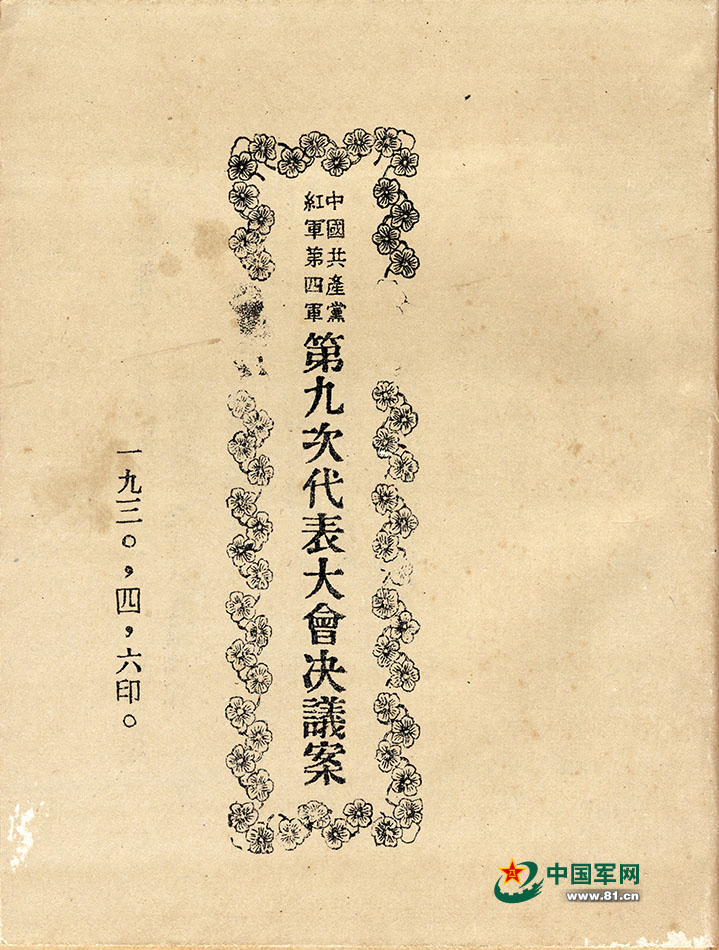 中國共產黨
紅軍第四軍
第九次代表大會決議案
一九三〇，四，六印。
中国军网
www.81.cn